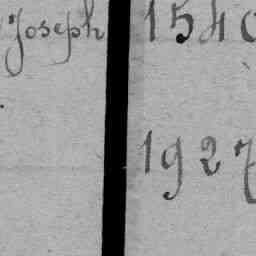 Joseph 1540
1927